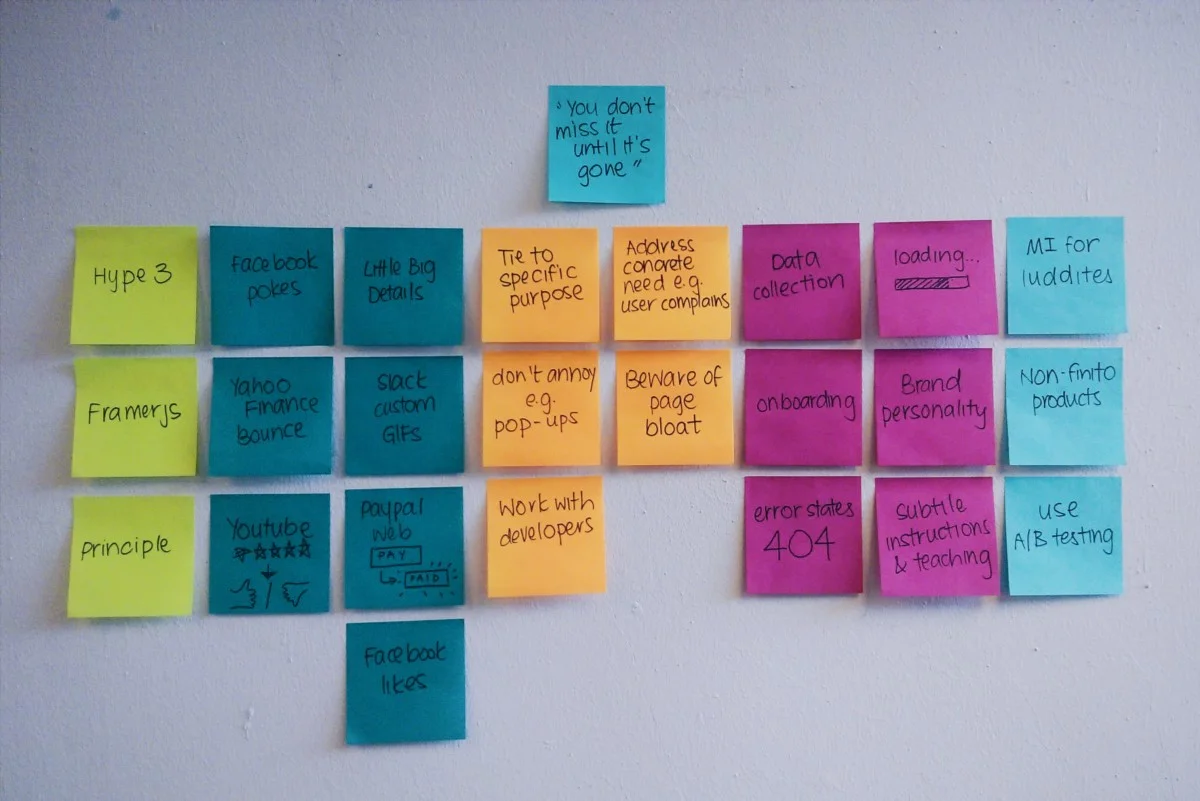 "You don't
miss it
until it's
gone"
Hype 3
Facebook
pokes
Little Big
Details
Tie to
specific
purpose
Address
concrete
need e.g.
user complains
Data
collection
loading...
MI for
luddites
Framerjs
Yahoo
Finance
Bounce
Slack
custom
GIFs
don't annoy
e.g.
pop-ups
Beware of
page
bloat
onboarding
Brand
personality
Non-finito
products
principle
Youtube
Paypal
web
PAY
PAID
Work with
developers
error states
404
subtile
instructions
& teaching
use
A/B testing
Facebook
likes